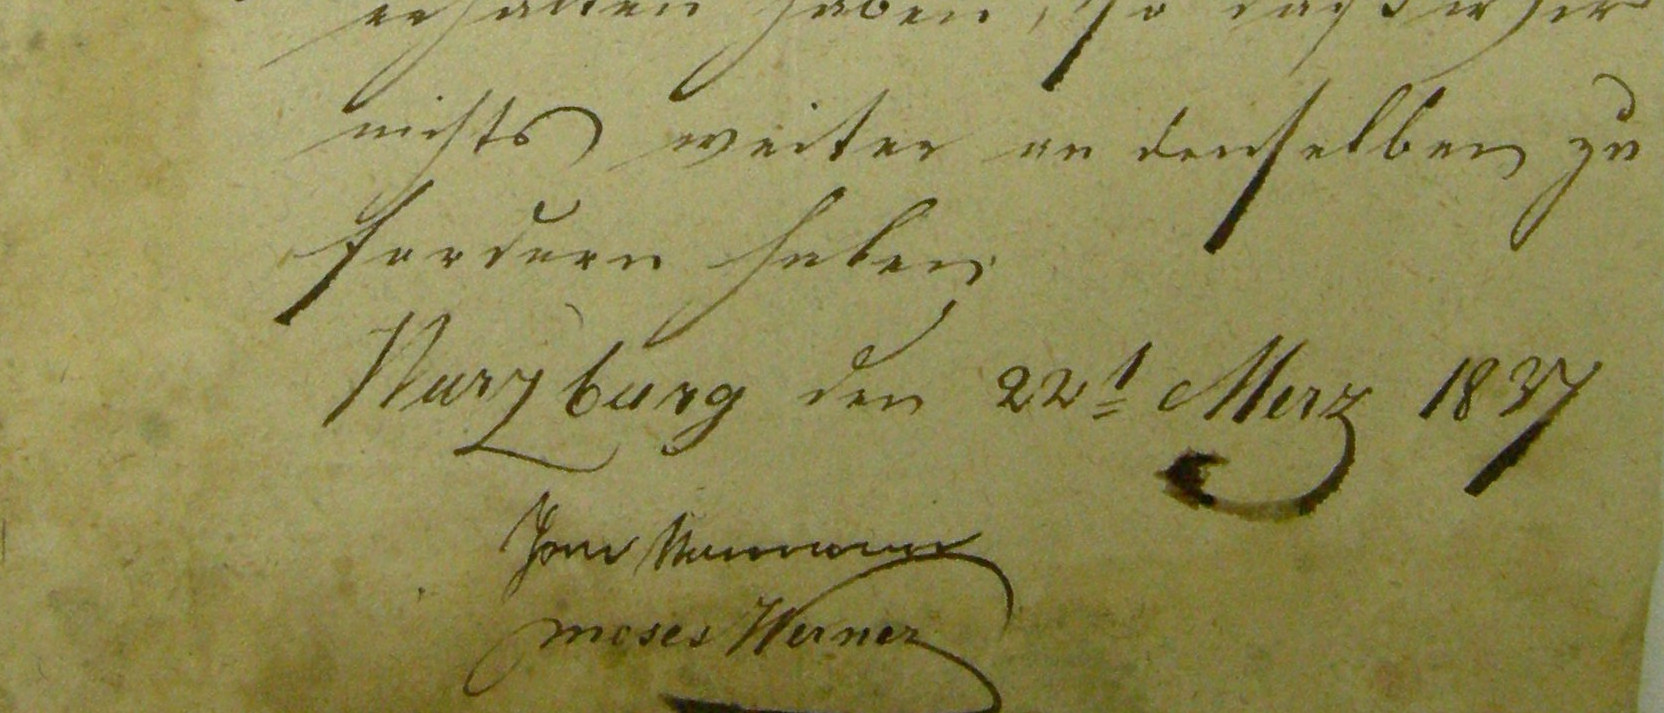 erhalten haben, so daß wir
nichts weiter an denselben zu
fordern haben
Wurzburg den 22t Merz 1837
Neumann
moses Werner